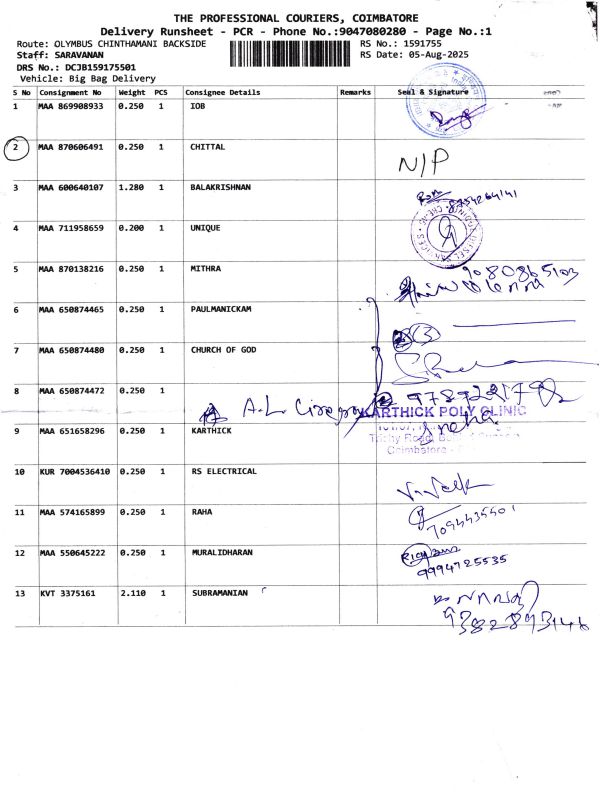 THE PROFESSIONAL COURIERS, COIMBATORE
Delivery Runsheet - PCR - Phone No.:9047080280 - Page No.:1
Route: OLYMBUS CHINTHAMANI BACKSIDE RS No.: 1591755
Staff: SARAVANAN RS Date: 05-Aug-2025
DRS No.: DCJB159175501
Vehicle: Big Bag Delivery
S No Consignment No Weight PCS Consignee Details Remarks Seal & Signature
1 MAA 869908933 0.250 1 IOB
2 MAA 870606491 0.250 1 CHITTAL N/P
3 MAA 600640107 1.280 1 BALAKRISHNAN 8754264141
4 MAA 711958659 0.200 1 UNIQUE
5 MAA 870138216 0.250 1 MITHRA 9080865103
6 MAA 650874465 0.250 1 PAULMANICKAM
7 MAA 650874480 0.250 1 CHURCH OF GOD (3)
8 MAA 650874472 0.250 1 A.L
KARTHICK POLY CLINIC
9 MAA 651658296 0.250 1 KARTHICK Sneha
Trichy Road,
Coimbatore -
10 KUR 7004536410 0.250 1 RS ELECTRICAL
11 MAA 574165899 0.250 1 RAHA 7094435501
12 MAA 550645222 0.250 1 MURALIDHARAN 9994725535
13 KVT 3375161 2.110 1 SUBRAMANIAN 9382893146